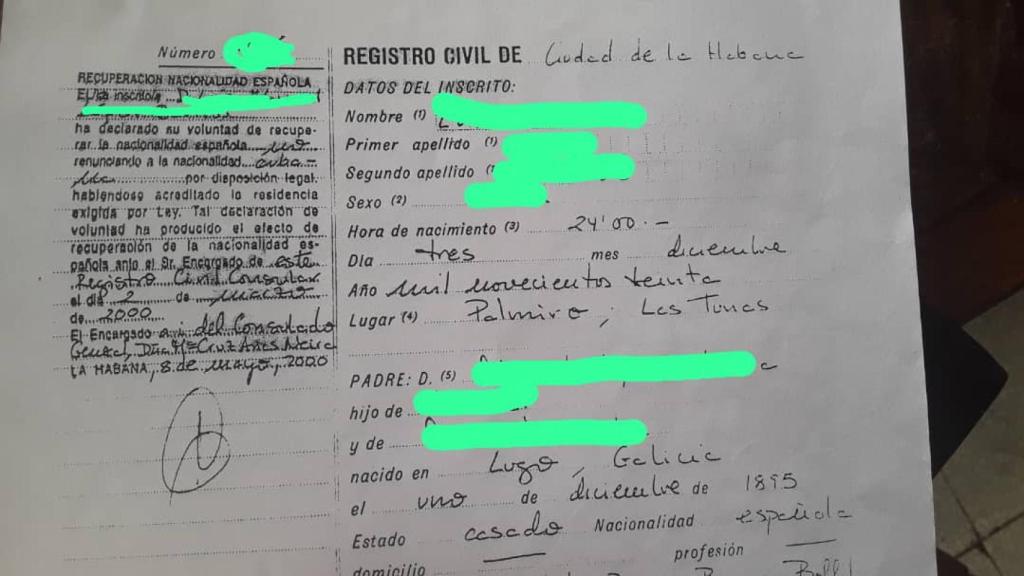 Número
RECUPERACION NACIONALIDAD ESPAÑOLA
El/la inscrito/a
ha declarado su voluntad de recupe-
rar la nacionalidad española
renunciando a la nacionalidad cuba-
na por disposición legal,
habiéndose acreditado la residencia
exigida por Ley. Tal declaración de
voluntad ha producido el efecto de
recuperación de la nacionalidad es-
pañola ante el Sr. Encargado de este
Registro Civil Consular
el día 2 de marzo
de 2000
El Encargado del Consulado
LA HABANA, 8 de mayo, 2000
REGISTRO CIVIL DE Ciudad de la Habana
DATOS DEL INSCRITO:
Nombre (1)
Primer apellido (1)
Segundo apellido
Sexo (2)
Hora de nacimiento (3) 24'00.-
Día tres mes diciembre
Año mil novecientos
Lugar (4) Palmiro, Las Tunas
PADRE: D. (5)
hijo de
y de
nacido en Lugo, Galicia
el uno de diciembre de 1895
Estado casado Nacionalidad española
domicilio profesión